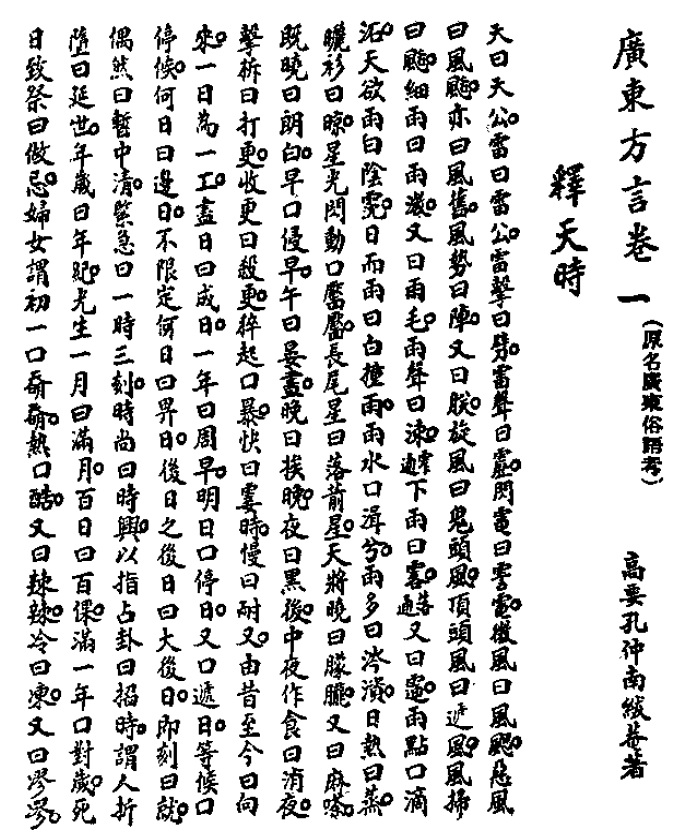 廣東方言卷一
(原名廣東俗語考)
高要孔仲南紱菴著
釋天時
天曰天公。雷曰雷公。雷擊曰劈。雷聲曰。閃電曰電。微風曰風颸。急風
曰風颸。亦曰風舊。風勢曰陣。又曰。旋風曰鬼頭風。頂頭風曰遞風。風掃
曰颸。細雨曰雨溦。又曰雨毛。雨聲曰涑。下雨曰。又曰。雨點曰滴
天欲雨曰陰。日而雨曰白撞雨。雨水曰渳兮。雨多曰涔漬。日熱曰蒸。
曬衫曰晾。星光閃動曰黶黶。長尾星曰落箭星。天將曉曰朦朧。又曰麻嗏。
既曉曰朗白。早曰侵早。午曰晏晝。晚曰挨晚。夜曰黑後。中夜作食曰消夜。
擊柝曰打更。收更曰殺更。猝起曰暴。快曰霎時。慢曰耐又。由昔至今曰向
來。一日為一工。盡日曰成日。一年曰周年。明日曰停日。又曰遞日。等候曰
停候。何日曰邊日。不限定何日曰畀日。後日之後日曰大後日。即刻曰就。
偶然曰暫中。清緊急曰一時三刻。時尚曰時興。以指占卦曰掐時。謂人折
墮曰延世。年歲曰年紀。兒生一月曰滿月。百日曰百倮。滿一年曰對歲。死
日致祭曰做忌。婦女謂初一曰奇奇。熱曰酷。又曰辣辣。冷曰凍。又曰漻漻。